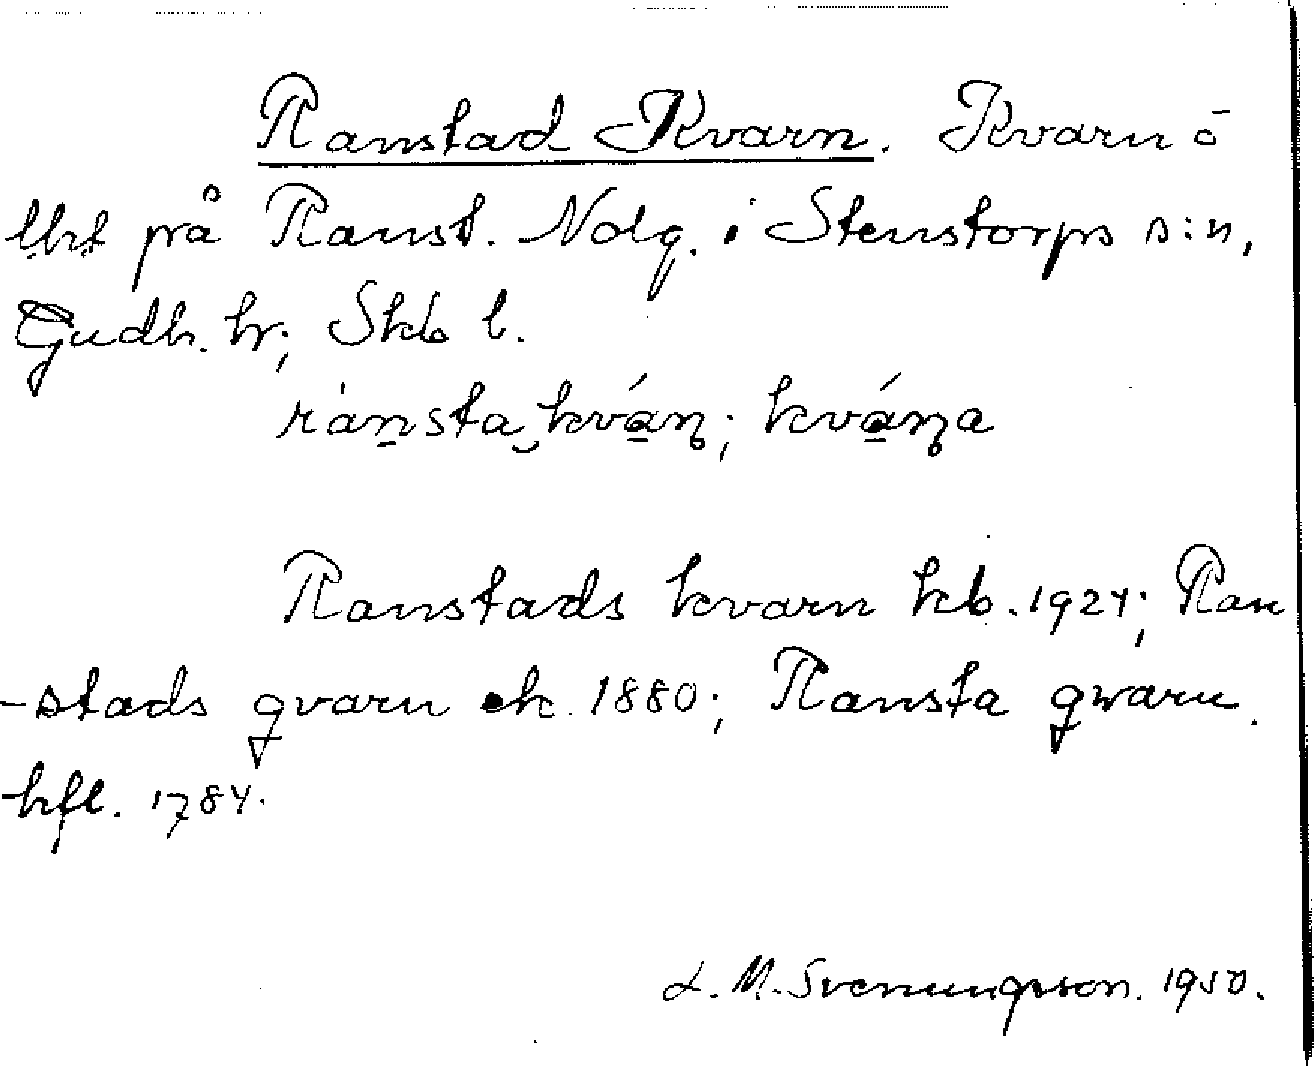 Ranstad Kvarn. Kvarn o
lht på Ranst. Nolg. i Stenstorps s:n,
Gudh. hr; Skb l.
ránsta kván; kvána
Ranstads kvarn kb. 1924; Ran
-stads qvarn ek. 1880; Ransta qwarn
hfl. 1784.
L. M. Svenungsson. 1950.